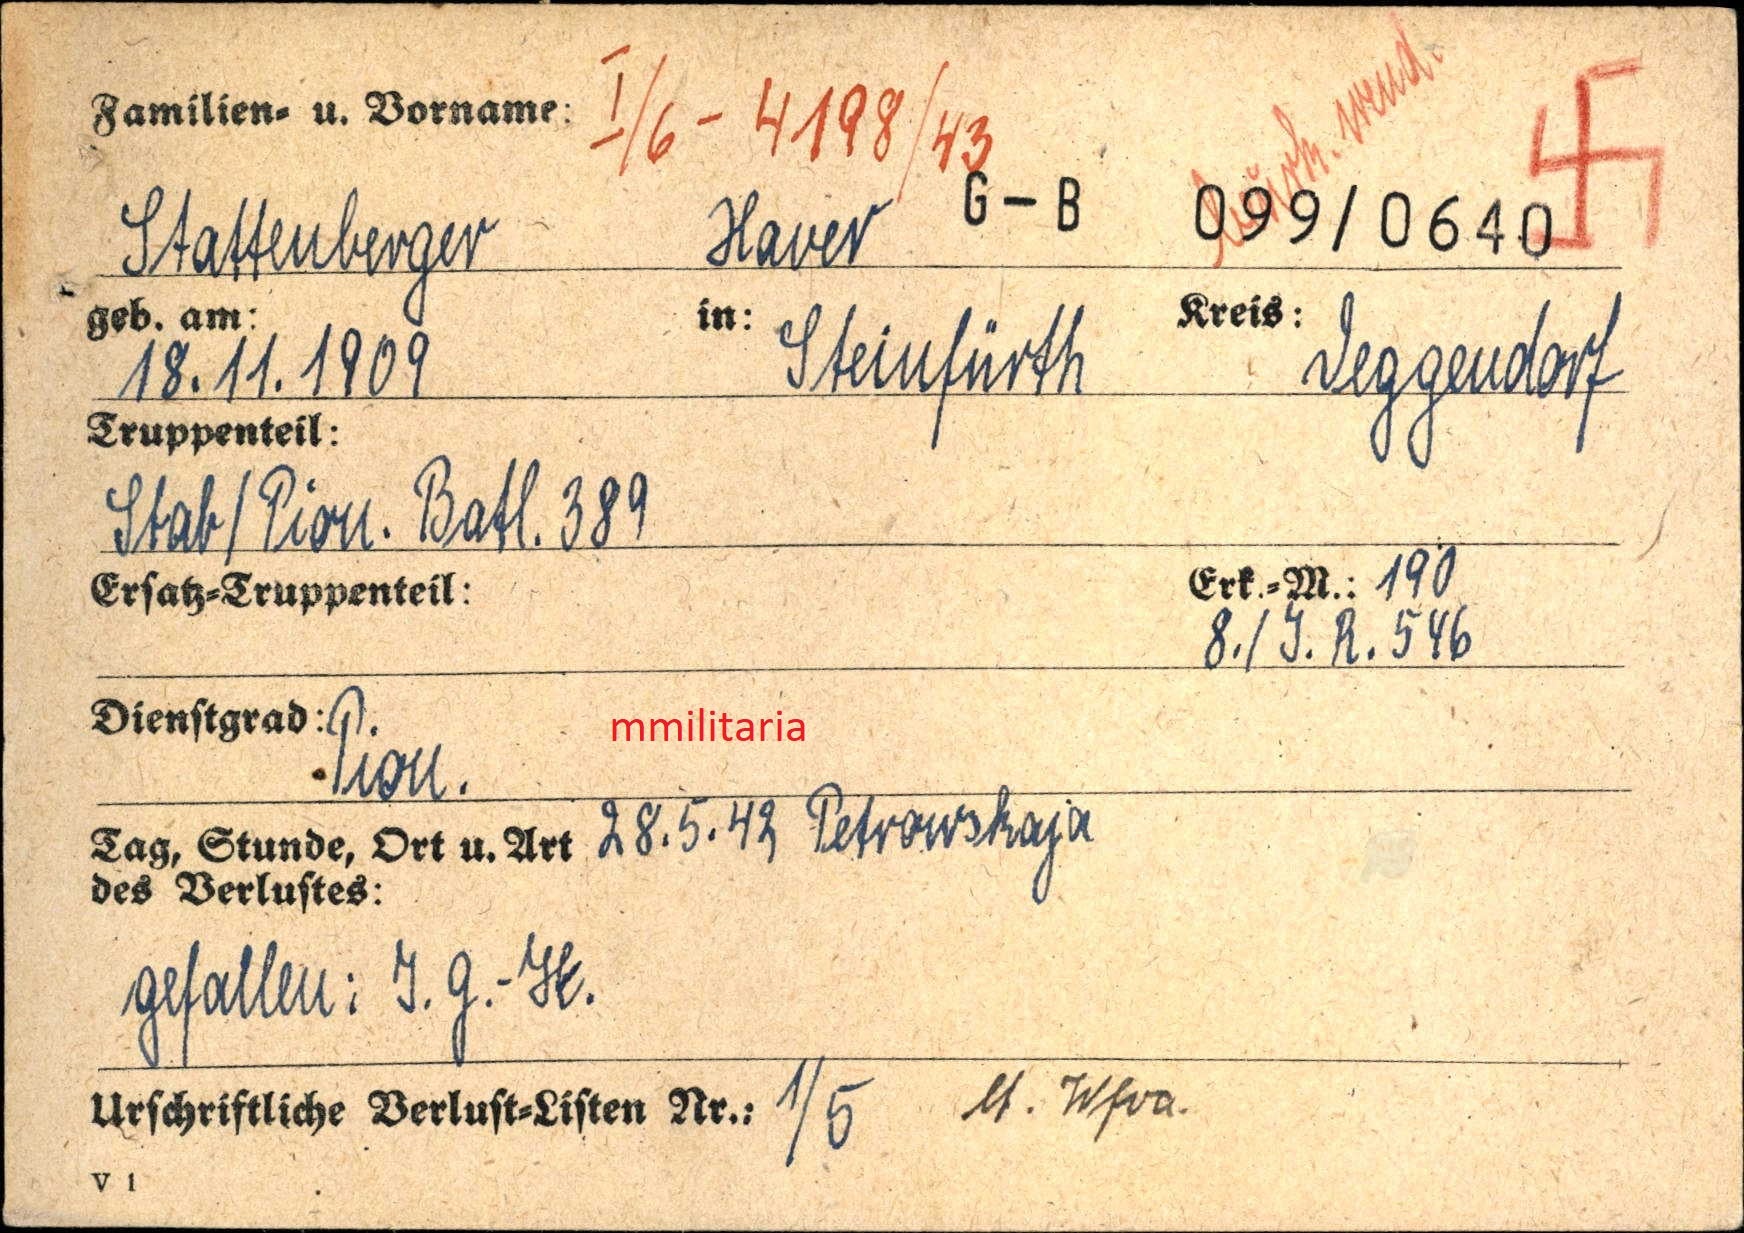 Familien- u. Vorname: I/6 - 4198/43
Stattenberger Xaver G-B 099/0640
geb. am: in: Kreis:
18.11.1909 Steinfürth Deggendorf
Truppenteil:
Stab/Pion. Batl. 389
Ersatz-Truppenteil: Erk.-M.: 190
8./J.R. 546
Dienstgrad: P.
Pion.
mmilitaria
Tag, Stunde, Ort u. Art 28.5.42 Petrowskaja
des Verlustes:
gefallen: J. G.-
Urschriftliche Verlust-Listen Nr.: 1/5 lt.
V 1